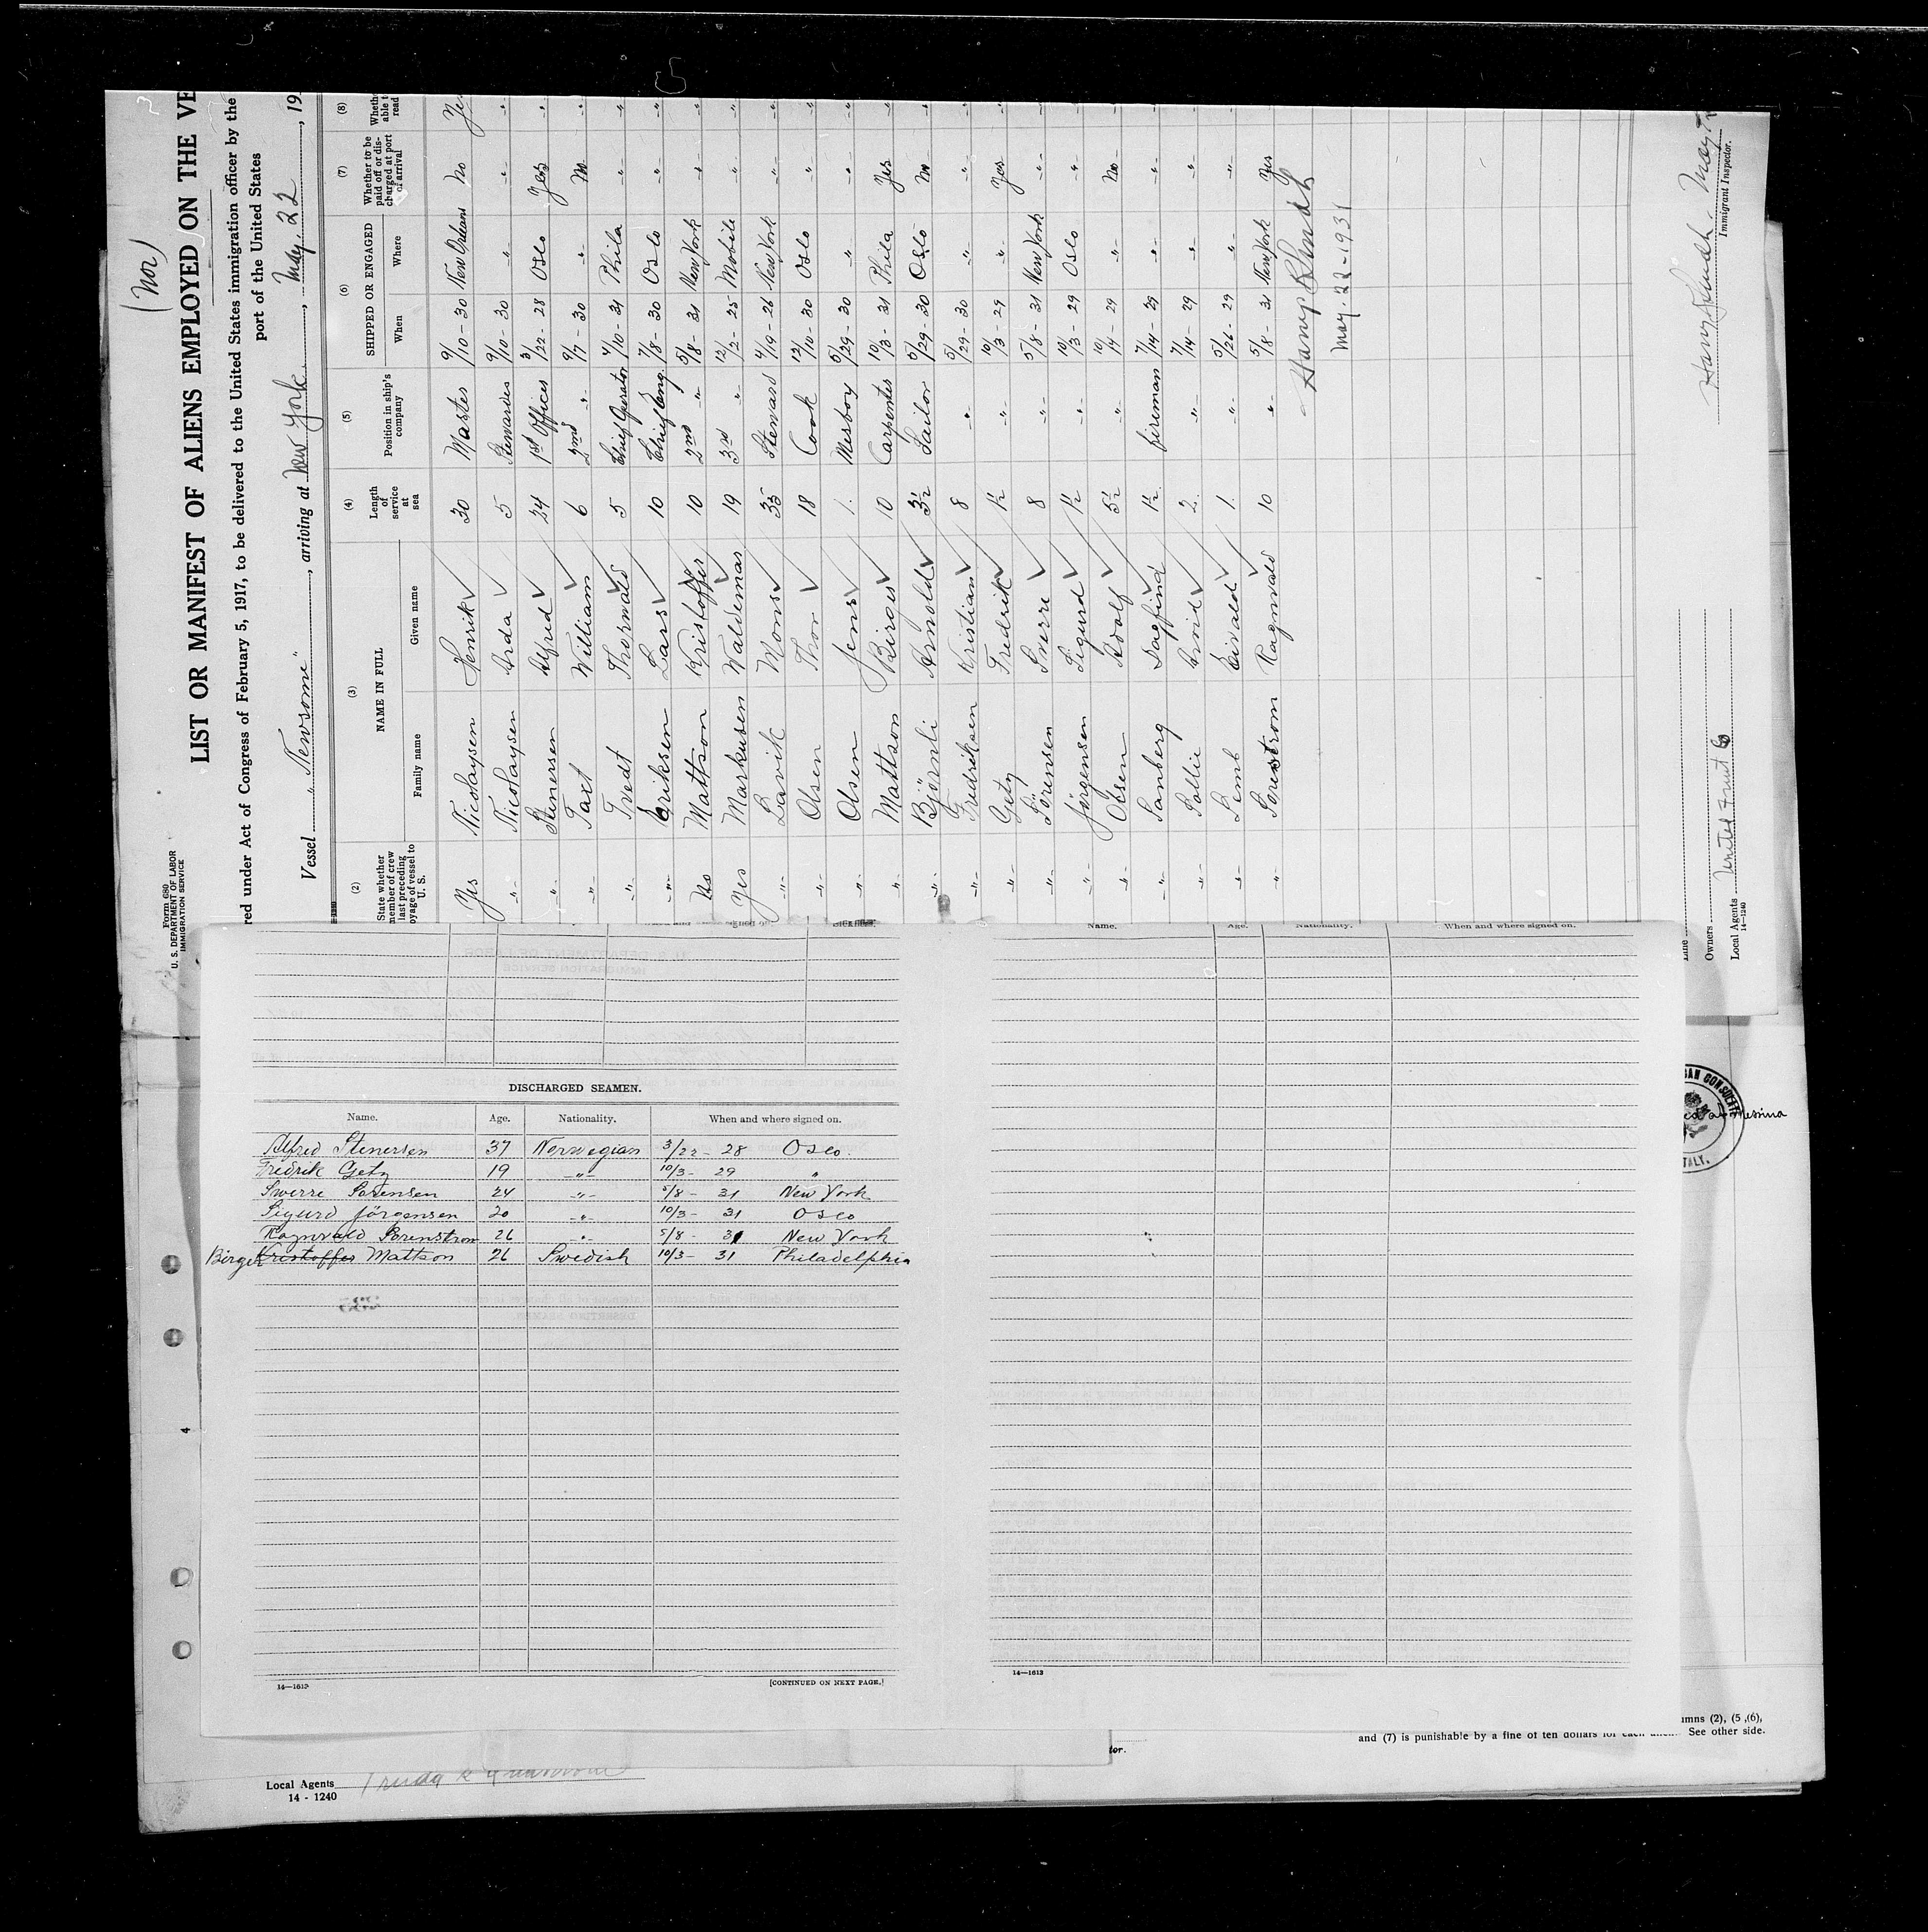 (Nor)
Form 680
U. S. DEPARTMENT OF LABOR
IMMIGRATION SERVICE
LIST OR MANIFEST OF ALIENS EMPLOYED ON THE VE
red under Act of Congress of February 5, 1917, to be delivered to the United States immigration officer by the
port of the United States
Vessel "Newsome", arriving at New York, May. 22, 19
(2) (3) (4) (5) (6) (7) (8)
State whether member of crew last preceding oyage of vessel to U. S. NAME IN FULL Family name Given name Length of service at sea Position in ship's company SHIPPED OR ENGAGED When Where Whether to be paid off or discharged at port of arrival Wheth able t read
Yes Nicolaysen Henrik 30 Master 9/10-30 New Orleans No Yes
-"- Nicolaysen Arda 5 Stewardes 9/10-30 -"- -"- "
-"- Stenersen Alfred 24 1st Officer 3/22-28 Oslo Yes "
-"- Taxt William 6 2nd -"- 9/7-30 -"- No "
-"- Tvedt Thorwald 5 Chief Operator 4/10-31 Phila -"- "
-"- Eriksen Lars 10 Chief Eng. 7/8-30 Oslo -"- "
No Mattson Kristoffer 10 2nd -"- 5/8-31 New York -"- "
Yes Markusen Waldemar 19 3rd -"- 12/2-25 Mobile -"- "
-"- Larvik Mons 35 Steward 4/19-26 New York -"- "
-"- Olsen Thor 18 Cook 12/10-30 Oslo -"- "
-"- Olsen Jens 1. Mesboy 5/29-30 -"- -"- "
-"- Mattson Birger 10 Carpenter 10/3-31 Phila Yes "
-"- Björnli Arnold 3½ Sailor 5/29-30 Oslo No "
-"- Fredriksen Kristian 8 -"- 5/29-30 -"- -"- "
-"- Getz Fredrik 1½ -"- 10/3-29 -"- Yes "
-"- Sörensen Sverre 8 -"- 5/8-31 New York -"- "
-"- Jörgensen Sigurd 1½ -"- 10/3-29 Oslo -"- "
-"- Olsen Adolf 5½ -"- 10/14-29 -"- No "
-"- Sanberg Dagfind 1½ fireman 7/14-29 -"- -"- "
-"- Sollie Arvid 2. -"- 7/14-29 -"- -"- "
-"- Lemb Eivald 1. -"- 5/26-29 -"- -"- "
-"- Sorenstrom Ragnvald 10 -"- 5/8-31 New York Yes "
May. 22-1931
Immigrant Inspector.
Line
Owners
Local Agents United Fruit Co
14-1240
DISCHARGED SEAMEN.
Name. Age. Nationality. When and where signed on.
Alfred Stenersen 37 Norwegian 3/22-28 Oslo.
Fredrik Getz 19 -"- 10/3-29 "
Swerre Sorensen 24 -"- 5/8-31 New York
Sigurd Jörgensen 20 -"- 10/3-31 Oslo
Ragnvald Sorenstrom 26 -"- 5/8-31 New York
Birger Kristoffer Mattson 26 Swedish 10/3-31 Philadelphia
14—1613
[CONTINUED ON NEXT PAGE.]
Name. Age. Nationality. When and where signed on.
14—1613
4
Messina
ITALY.
umns (2), (5,(6),
and (7) is punishable by a fine of ten dollars for each alien. See other side.
tor.
Local Agents
14 - 1240